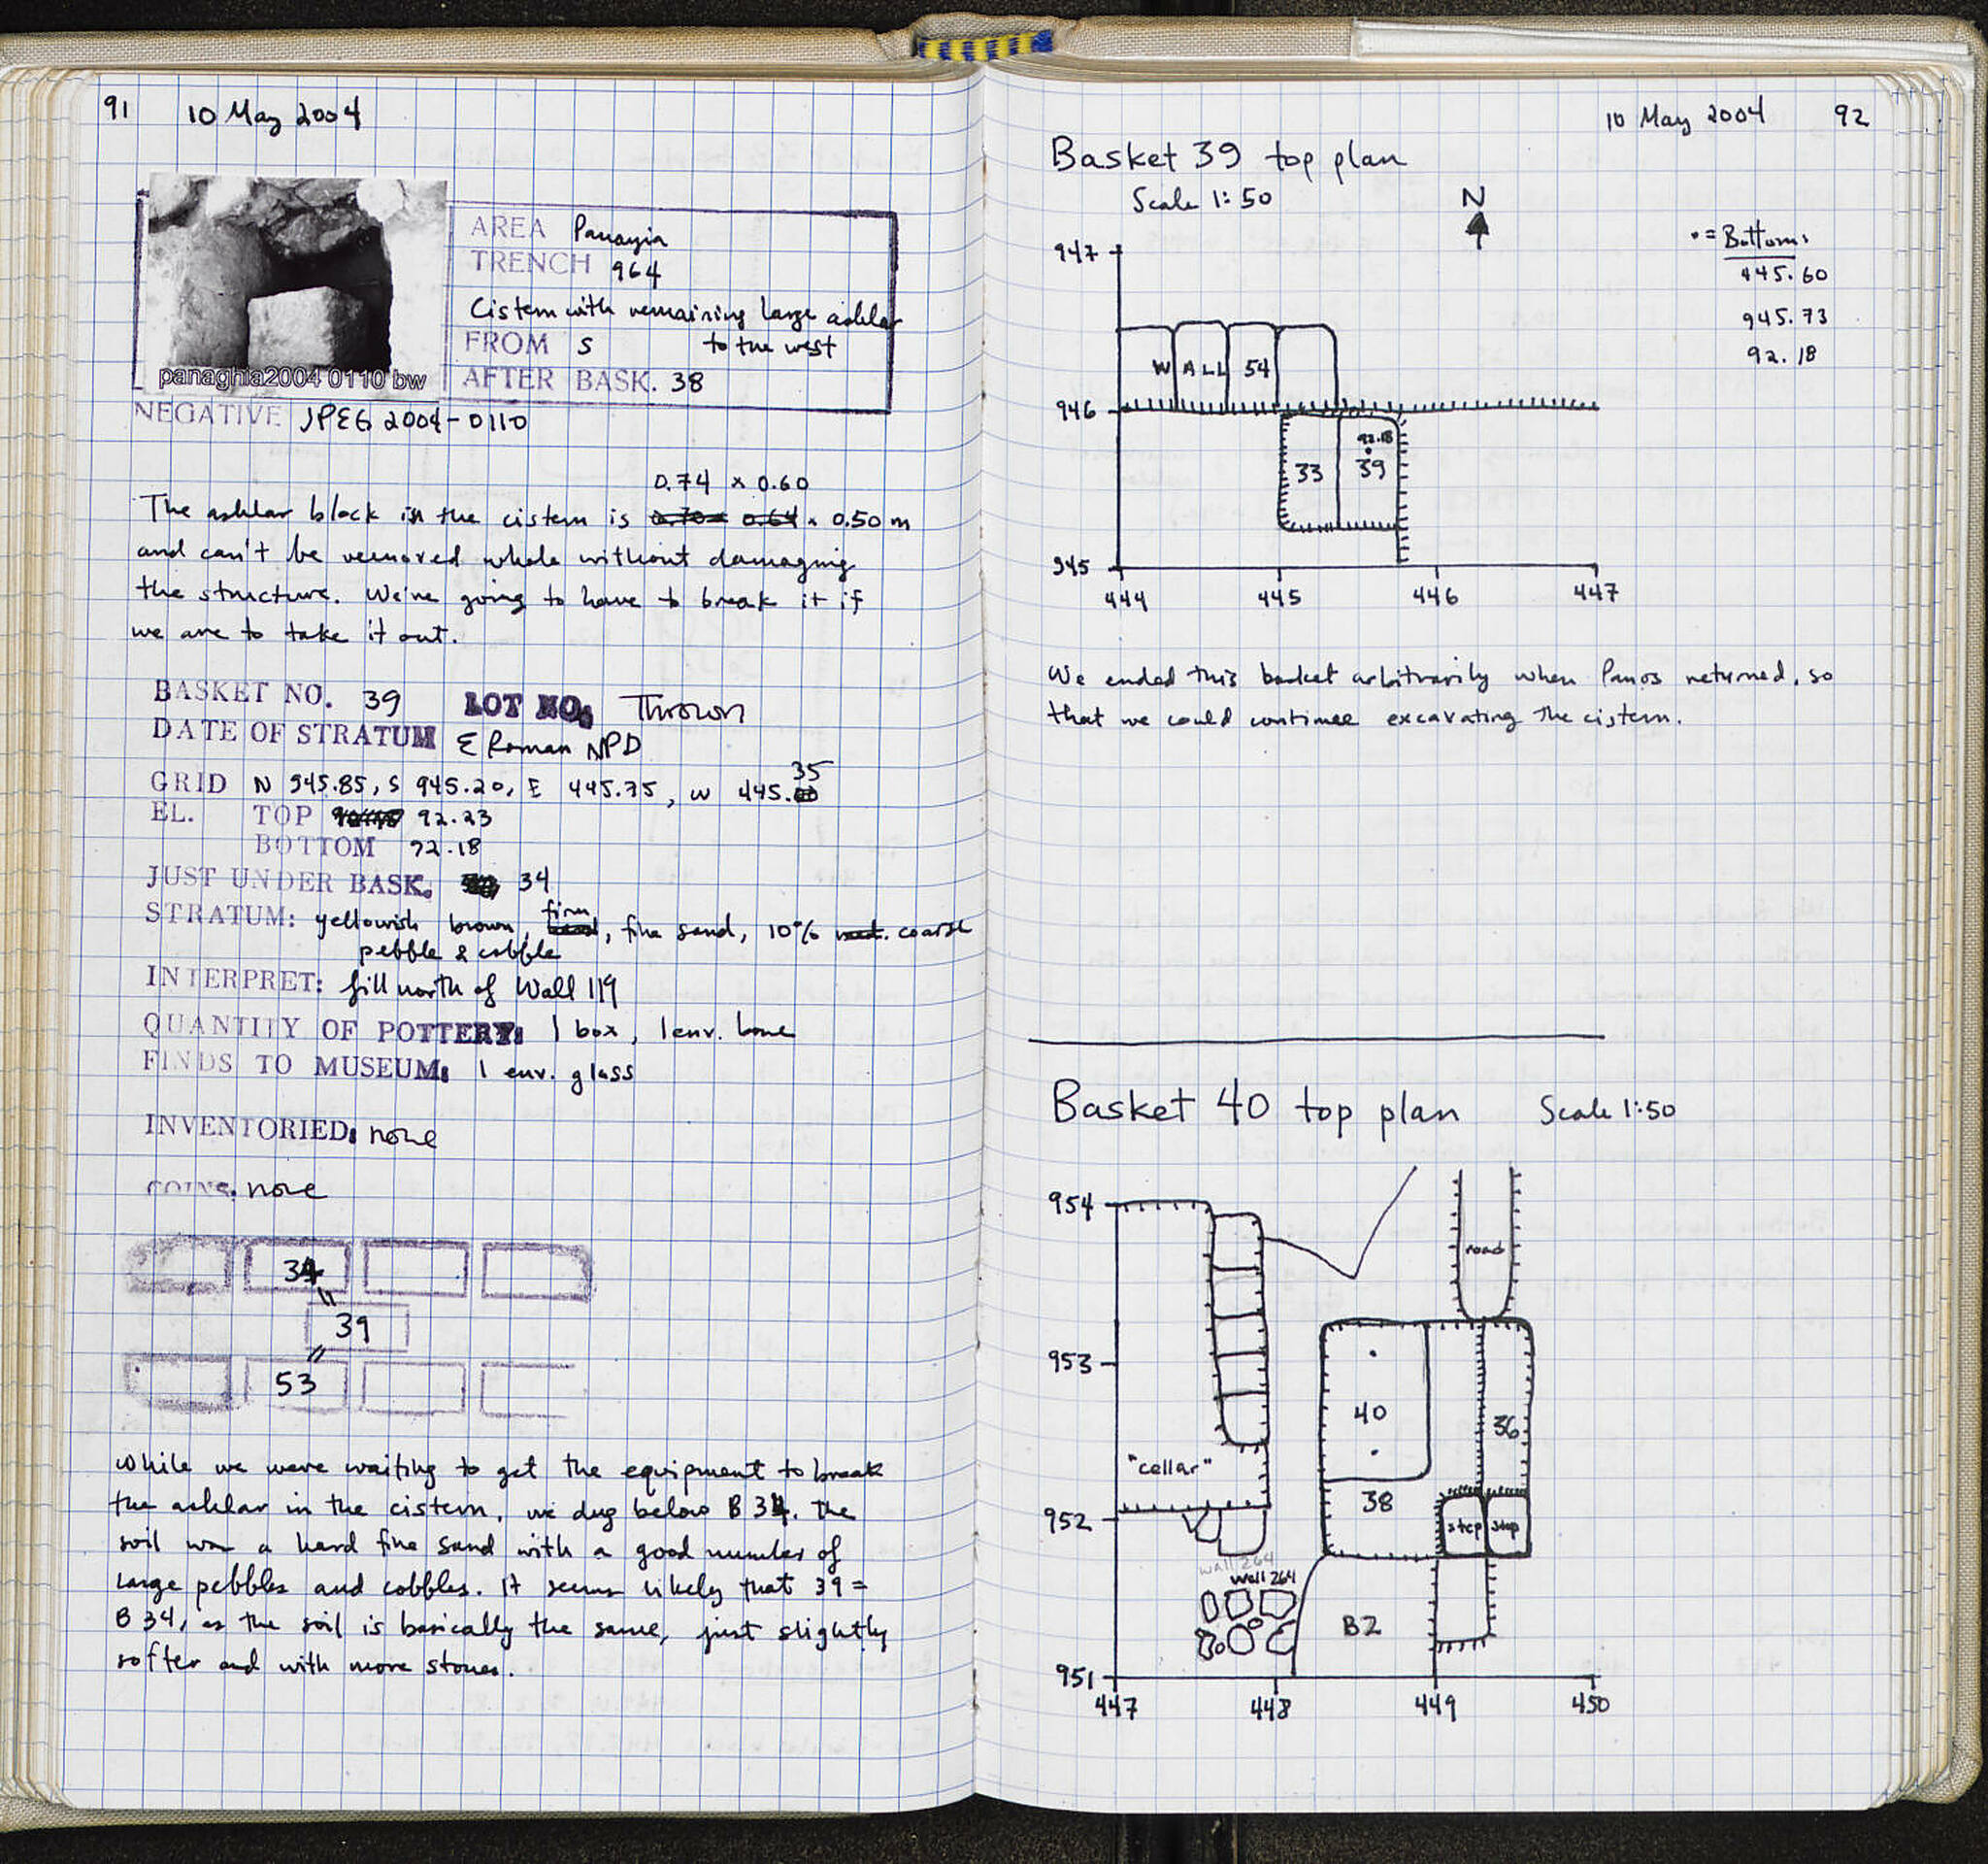 91 10 May 2004
AREA Panayia
TRENCH 964
Cistern with remaining large ashlar
FROM S to the west
AFTER BASK. 38
panaghia2004 0110 bw
NEGATIVE JPEG 2004-0110
0.74 x 0.60
The ashlar block in the cistern is 0.70 x 0.64 x 0.50 m
and can't be removed whole without damaging
the structure. We're going to have to break it if
we are to take it out.
BASKET NO. 39 LOT NO. Thrown
DATE OF STRATUM E Roman NPD
35
GRID N 945.85, S 945.20, E 445.75, W 445.
EL. TOP 92.23
BOTTOM 92.18
JUST UNDER BASK. 34
firm
STRATUM: yellowish brown, hard, fine sand, 10% med. coarse
pebble & cobble
INTERPRET: fill north of Wall 119
QUANTITY OF POTTERY: 1 box, 1 env. bone
FINDS TO MUSEUM: 1 env. glass
INVENTORIED: none
COINS. none
34
39
53
While we were waiting to get the equipment to break
the ashlar in the cistern, we dug below B 34. The
soil was a hard fine sand with a good number of
large pebbles and cobbles. It seems likely that 39 =
B 34, as the soil is basically the same, just slightly
softer and with more stones.
10 May 2004 92
Basket 39 top plan
Scale 1:50
N
• = Bottoms
445.60
945.73
92.18
947
WALL 54
946
92.18
33 39
945
444 445 446 447
We ended this basket arbitrarily when Panos returned, so
that we could continue excavating the cistern.
Basket 40 top plan Scale 1:50
954
road
953
40
36
"cellar"
38
952
step step
wall 264
wall 264
B2
951
447 448 449 450